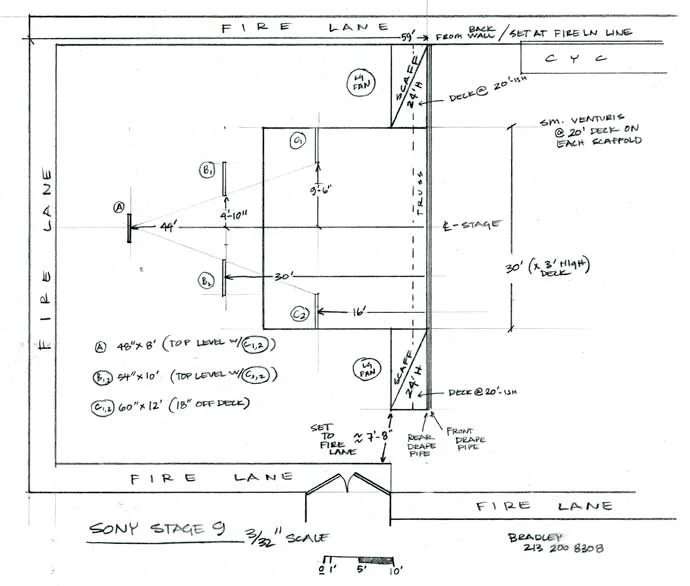 FIRE LANE
59'
FROM BACK WALL / SET AT FIRE LN LINE
CYC
LG FAN
SCAFF
24'H
DECK @ 20'-ISH
SM. VENTURIS
@ 20' DECK ON
EACH SCAFFOLD
FIRE LANE
C1
B1
A
9'-6"
4'-10"
TRUSS
44'
℄-STAGE
30'
B2
30' (x 3' HIGH)
DECK
C2
16'
A 48"x8' (TOP LEVEL W/C1,2)
B1,2 54"x10' (TOP LEVEL W/
C1,2 60"x12' (18" OFF DECK)
LG FAN
SCAFF
24'H
DECK @ 20'-ISH
SET
TO
FIRE
LANE
≈ 7'-8"
REAR
DRAPE
PIPE
FRONT
DRAPE
PIPE
FIRE LANE
FIRE LANE
SONY STAGE 9
3/32" SCALE
BRADLEY
213 200 8308
0 1' 5' 10'